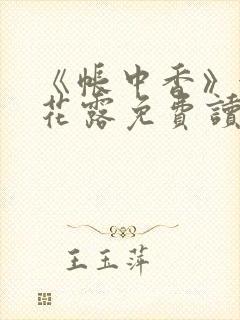 《帳中香》
花露免費讀
王玉萍